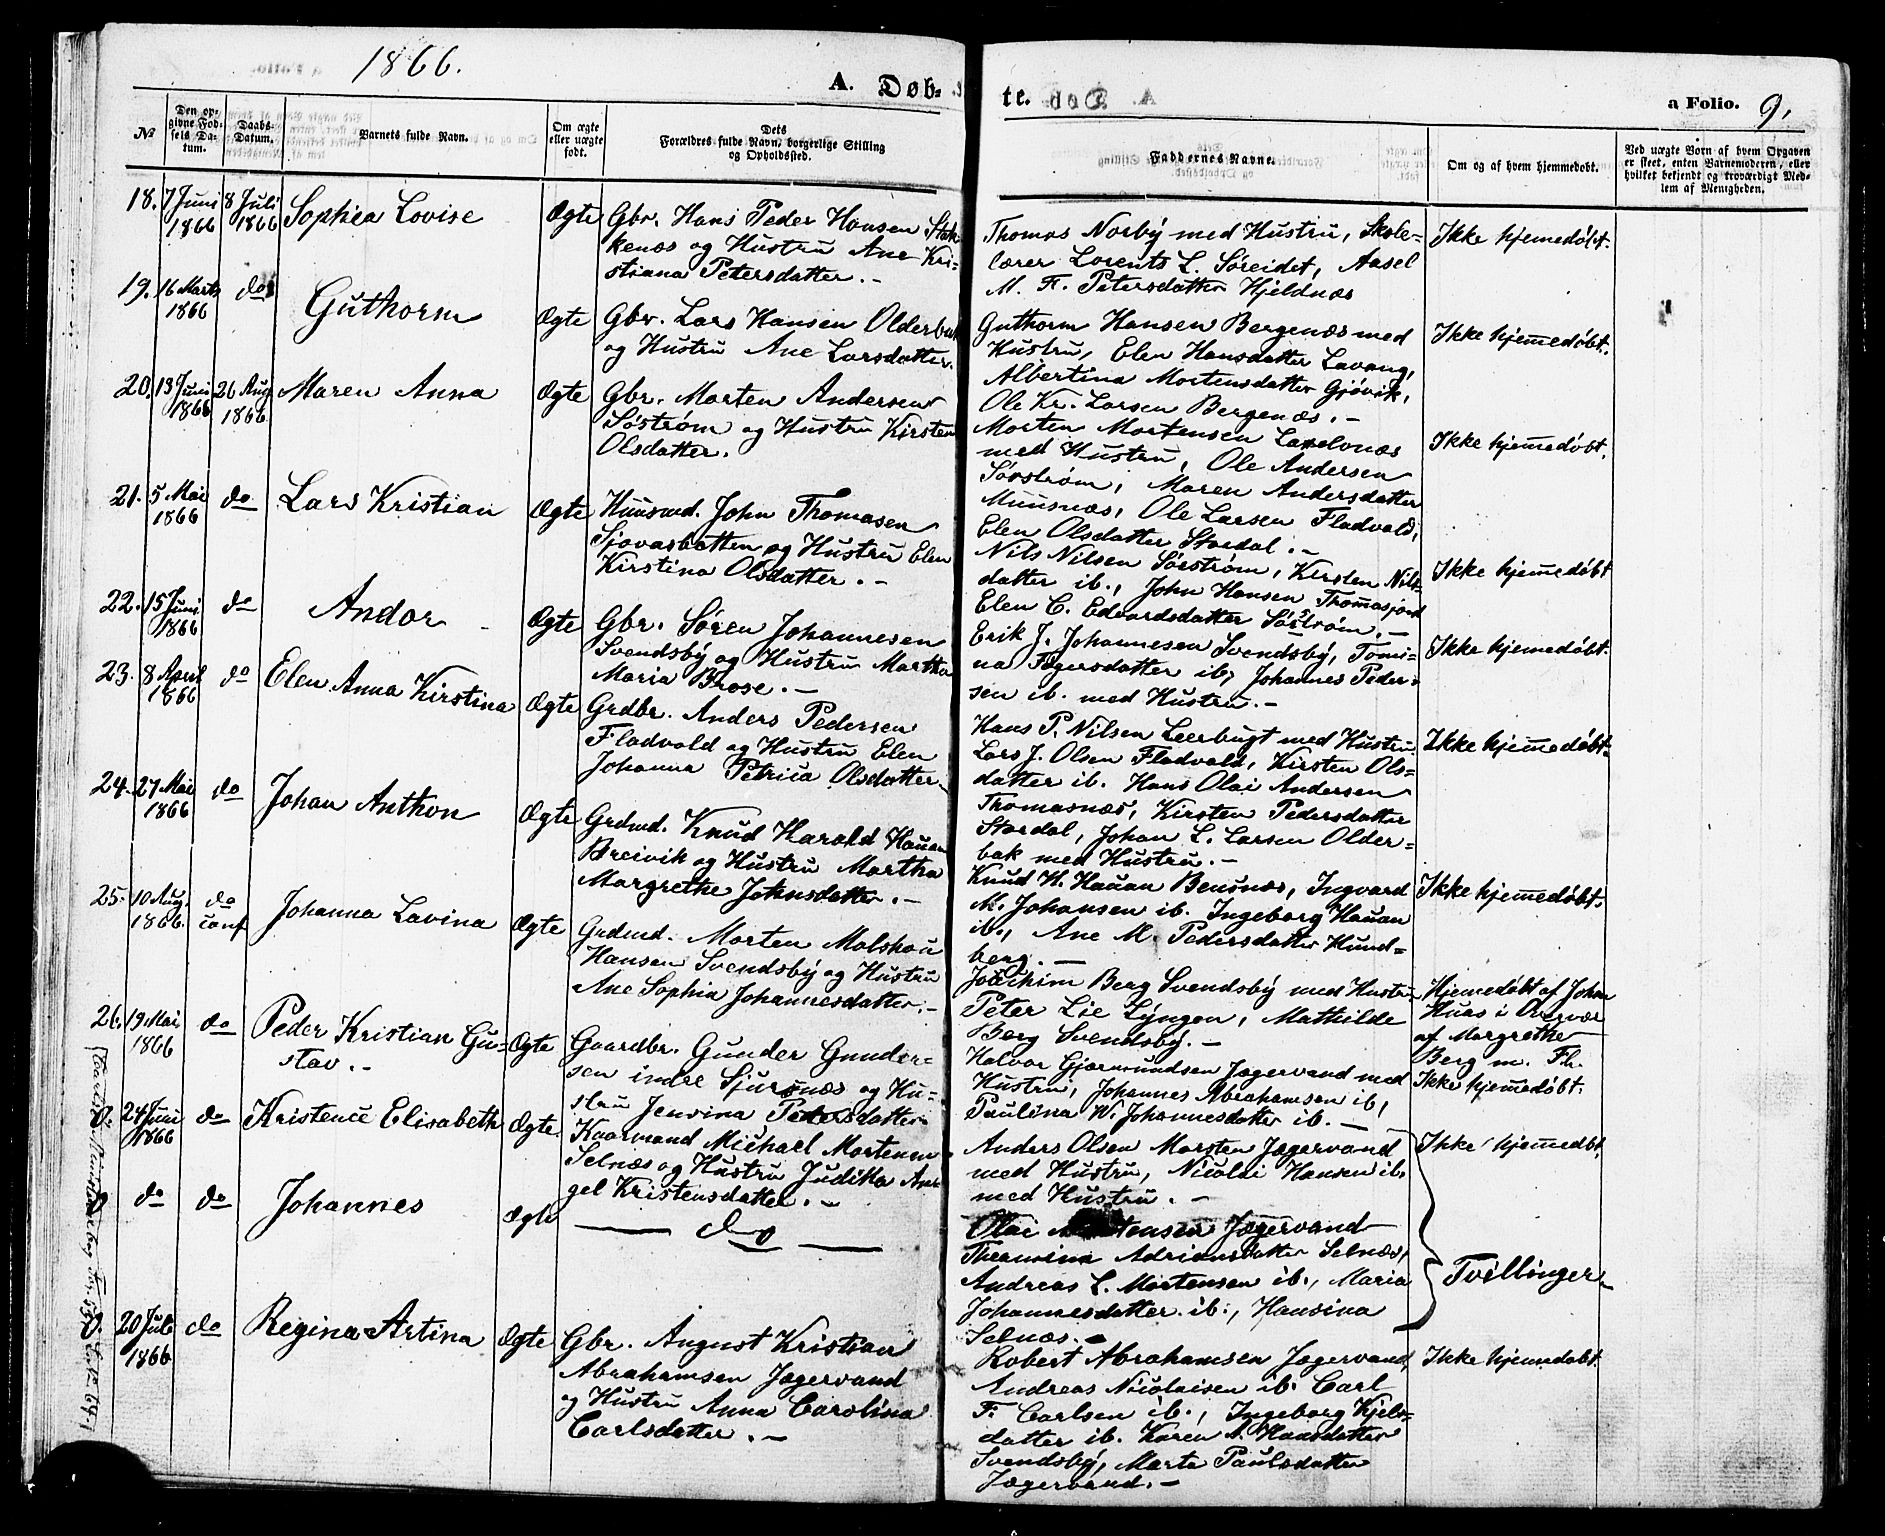 1866.
A. Døb-
te.
a Folio. 9.
No
Den op-
givne Fød-
sels Da-
tum.
Daabs-
Datum.
Barnets fulde Navn.
Om ægte
eller uægte
født.
Dets
Forældres fulde Navn, borgerlige Stilling
og Opholdssted.
Faddernes Navne.
Om og af hvem hjemmedøbt.
Ved uægte Børn af hvem Opgaven
er skeet, enten Barnemoderen, eller
hvilket bekjendt og troværdigt Med-
lem af Menigheden.
18. 7 Juni
1866
8 Juli
1866
Sophia Lovise
Ægte
Gbr. Hans Peder Hansen Stak-
kenæs og Hustru Ane Kri-
stiana Petersdatter. -
Thomas Norby med Hustru, Skole-
lærer Lorents L. Søreidet, Aasel
M. F. Petersdatter Hjeldnæs
Ikke hjemedøbt.
19. 16 Marts
1866
do
Guthorm
Ægte
Gbr. Lars Hansen Olderbak
og Hustru Ane Larsdatter.
Guthorm Hansen Bergenæs med
Hustru, Elen Hansdatter Lavang,
Albertina Mortensdatter Gjøvik,
Ole Kr. Larsen Bergenæs. -
Ikke hjemedøbt.
20. 13 Juni
1866
26 Aug
1866
Maren Anna
Ægte
Gbr. Morten Andersen
Søstrøm og Hustru Kirsten
Olsdatter.
Morten Mortensen Laxelvnæs
med Hustru, Ole Andersen
Sørstrøm, Maren Andersdatter
Muusnæs, Ole Larsen Fladvold,
Elen Olsdatter Stordal. -
Ikke hjemedøbt.
21. 5 Mai
1866
do
Lars Kristian
Ægte
Huusmd. John Thomasen
Sjovasbotten og Hustru Elen
Kirstina Olsdatter. -
Nils Nilsen Sørstrøm, Kirsten Nils-
datter ib., John Hansen Thomasjord
Elen C. Edvardsdatter Søstrøm. -
Ikke hjemedøbt
22. 15 Juni
1866
do
Andor -
Ægte
Gbr. Søren Johannesen
Svendsby og Hustru Martha
Maria Brose. -
Erik J. Johannesen Svendsby, Tomi-
na Fægersdatter ib, Johannes Peder-
sen ib. med Hustru. -
Ikke hjemedøbt.
23. 8 April
1866
do
Elen Anna Kirstina
Ægte
Grdbr. Anders Pedersen
Fladvold og Hustru Elen
Johanna Petrica Olsdatter.
Hans P. Nilsen Leerbugt med Hustru
Lars J. Olsen Fladvold, Kirsten Ols-
datter ib. Hans Olai Andersen
Thomasnæs, Kirsten Pedersdatter
Stordal, Johan L. Larsen Older-
bak med Hustru. -
Ikke hjemedøbt.
24. 27 Mai
1866
do
Johan Anthon
Ægte
Grdmd. Knud Harald Hauan
Breivik og Hustru Martha
Margrethe Johnsdatter. -
Knud H. Hauan Bensnæs, Ingvard
M. Johansen ib. Ingeborg Hauan
ib., Ane M. Pedersdatter Hund-
berg. -
Ikke hjemedøbt.
25. 10 Aug.
1866.
do
conf
Johanna Lavina
Ægte
Grdmd. Morten Molshou
Hansen Svendsby og Hustru
Ane Sophia Johannesdatter. -
Joachim Berg Svendsby med Hustru
Peter Lie Lyngen, Mathilde
Berg Svendsby. -
Hjemedøbt af Johan
Huas i Overvær
af Margrethe
Berg m. Fl.
26. 19 Mai
1866
do
Peder Kristian Gu-
stav. -
Ægte
Gaardbr. Gunder Gunder-
sen indre Sjursnæs og Hu-
stru Jensina Petersdatter
Halvor Gjermundsen Jægervand med
Hustru, Johannes Abrahamsen ib,
Paulina W. Johannesdatter ib. -
Ikke hjemedøbt.
24 Juni
1866
do
Kristence Elisabeth
Ægte
Kaarmand Michael Mortensen
Selnæs og Hustru Juditha An-
gel Kristensdatter. -
Anders Olsen Marsten Jægervand
med Hustru, Nicolai Hansen ib.
med Hustru. -
Ikke hjemedbt.
do
do
Johannes
Ægte
— do —
Olai Mortensen Jægervand
Theansina Adriansdatter Selnæs,
Andreas L. Mortensen ib., Maria
Johannesdatter ib., Hansina
Selnæs. -
Tvillinger
20 Juli
1866
do
Regina Artina
Ægte
Gbr. August Kristian
Abrahamsen Jægervand
og Hustru Anna Carolina
Carlsdatter. -
Robert Abrahamsen Jægervand,
Andreas Nicolaisen ib. Carl
F. Carlsen ib., Ingeborg Kjels-
datter ib. Karen A. Hansdatter
Svendsby, Marta Paulsdatter
Jægervand. -
Ikke hjemedøbt